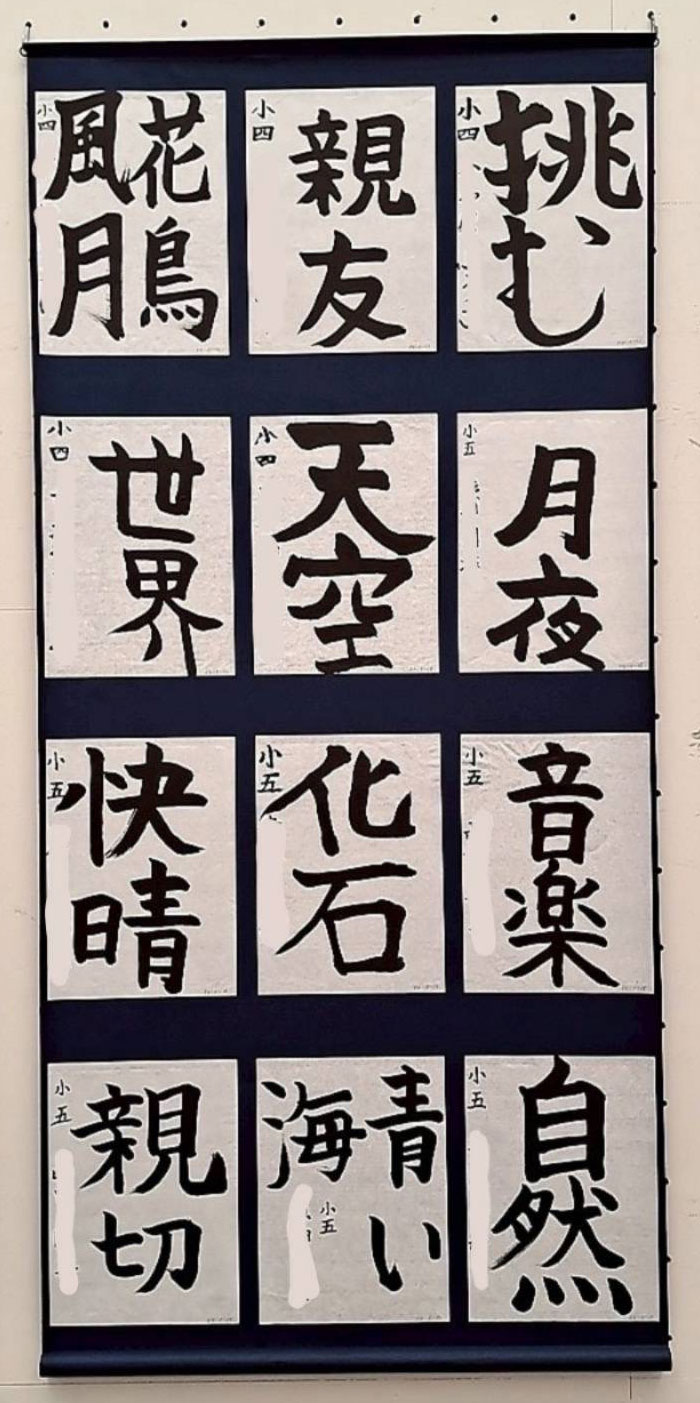 挑む
小四
親友
小四
花鳥
風月
小四
月夜
小五
天空
小四
世界
小四
音楽
小五
化石
小五
快晴
小五
自然
小五
青い
海
小五
親切
小五